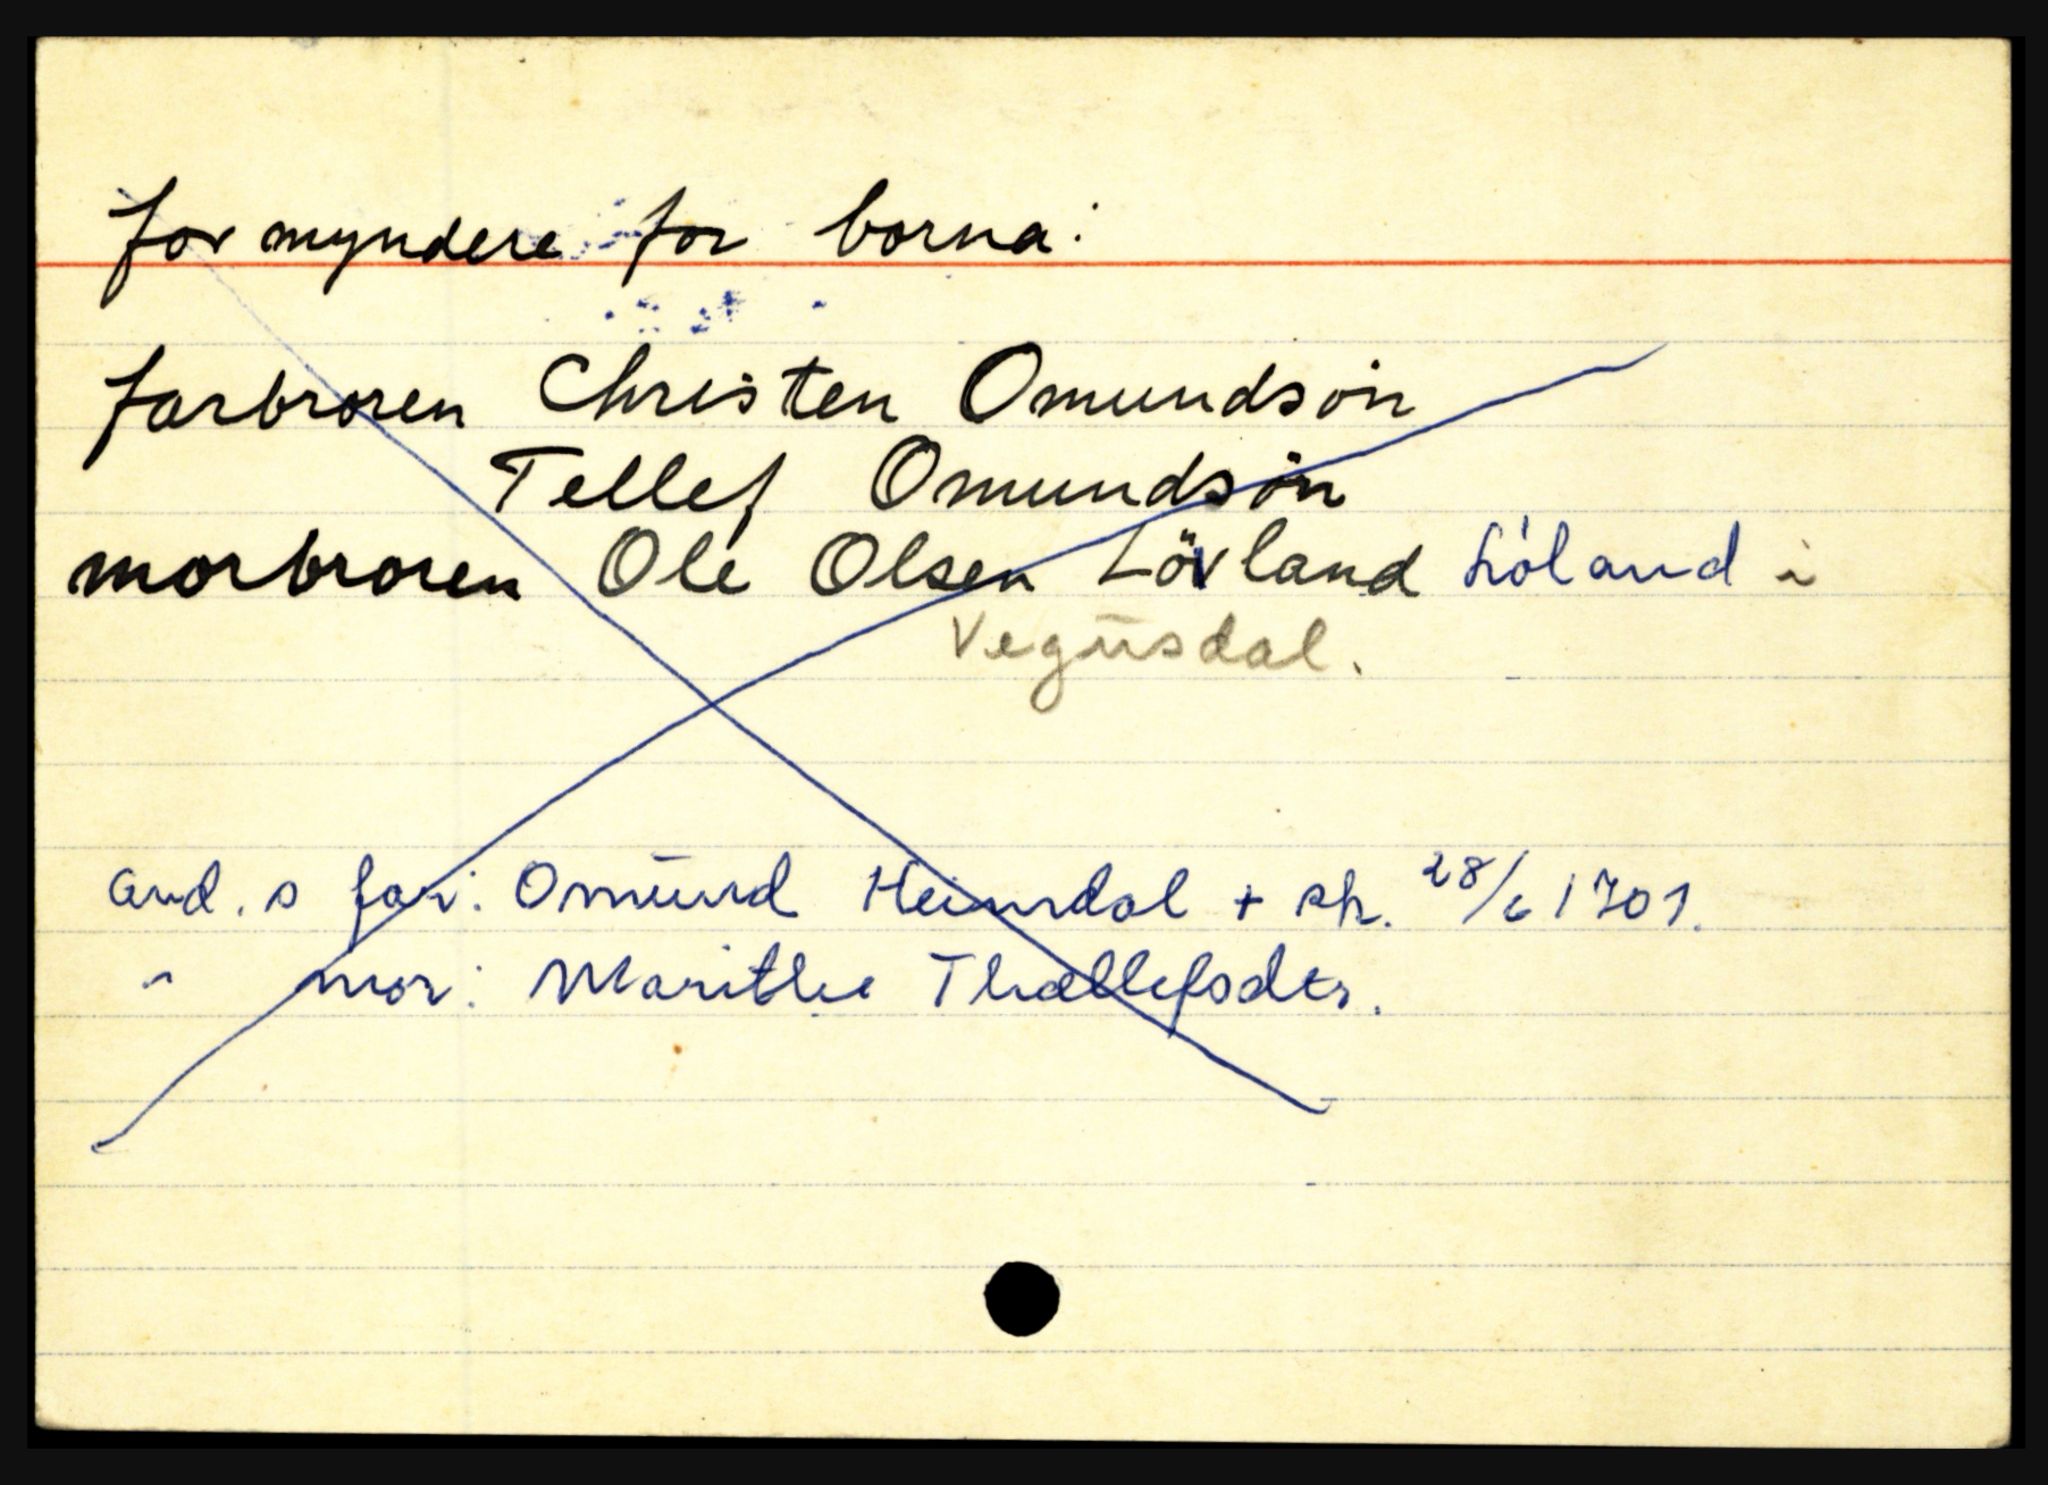 formyndere for borna:
farbroren Christen Omundsön
Tellef Omundsön
morbroren Ole Olsen Lövland Löland i
Vegusdal.
And. s far: Omund Heimdal + sk. 28/6 1701.
" mor: Marithe Thællefsdtr.